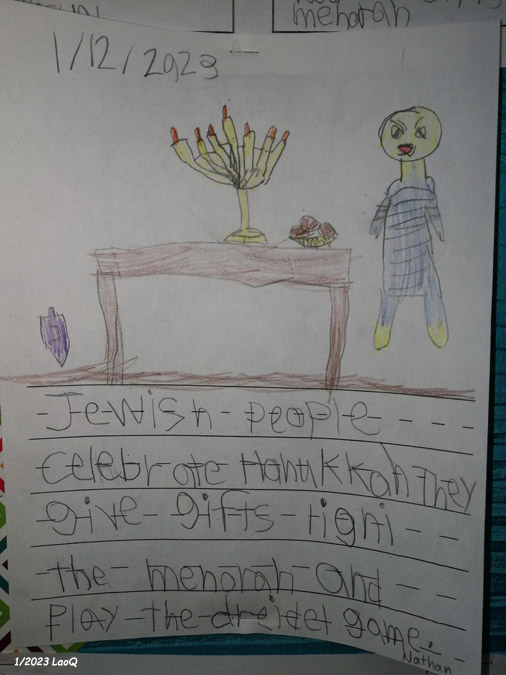 menorah
1/12/2023
Jewish people
Celebrate Hanukkah They
give gifts light
the menorah and
play the dreidel game.
Nathan
1/2023 LaoQ